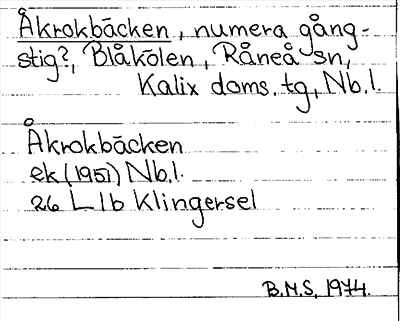 Åkrokbäcken, numera gång-
stig?, Blåkölen, Råneå sn,
Kalix doms. tg, Nb.l.
Åkrokbäcken
ek (1951) Nb.l.
26 L 1b Klingersel
B.M.S. 1974.